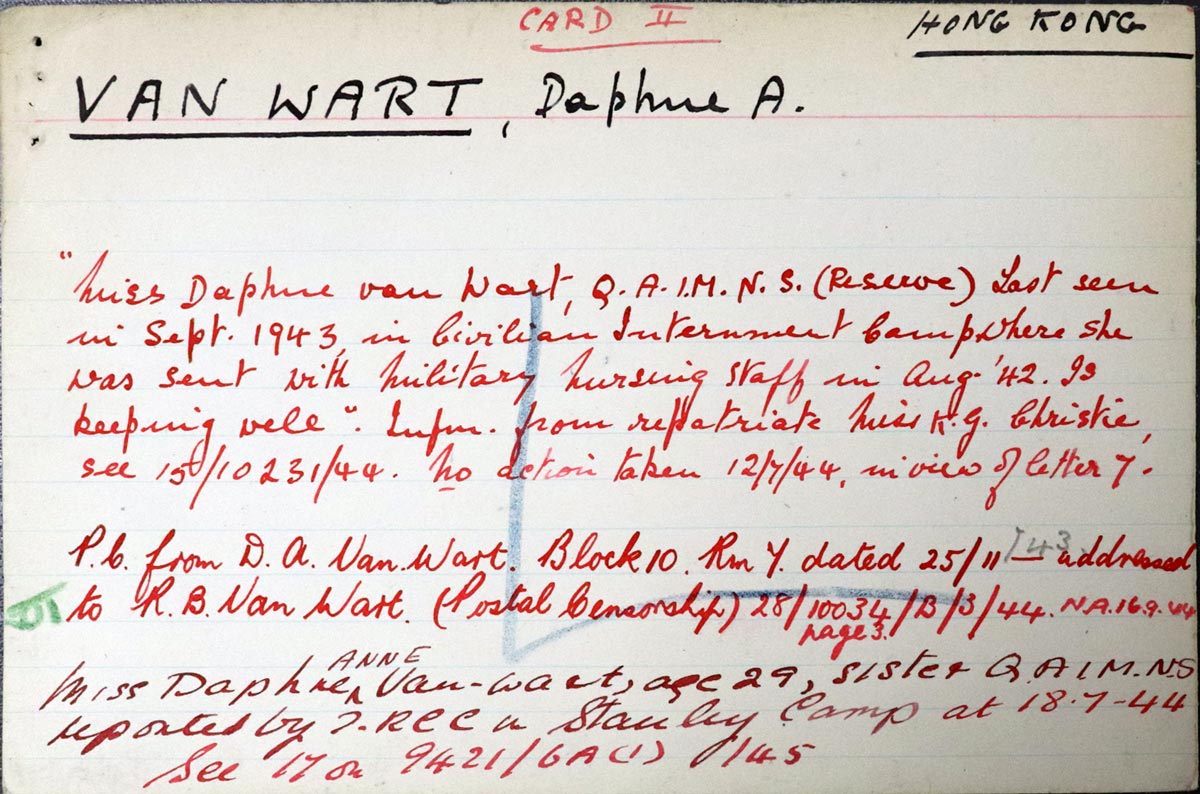 CARD II
HONG KONG
VAN WART, Daphne A.
"Miss Daphne van Wart, Q.A.I.M.N.S. (Reserve) Last seen
in Sept. 1943, in Civilian Internment Camp, where she
was sent with military nursing staff in Aug. '42. Is
keeping well". Infm. from repatriate Miss K.G. Christie,
see 150/10231/44. No action taken 12/7/44, in view of letter 7.
P.C. from D.A. Van Wart. Block 10. Rm 7. dated 25/11/43 addressed
to R.B. Van Wart. (Postal Censorship) 28/10034/B/3/44. N.A. 16.9.44
page 3.
ANNE
Miss Daphne Van-Wart, age 29, sister Q.A.I.M.N.S
reported by I.RCC in Stanley Camp at 18.7-44
See 17 on 9421/6A(1) /45